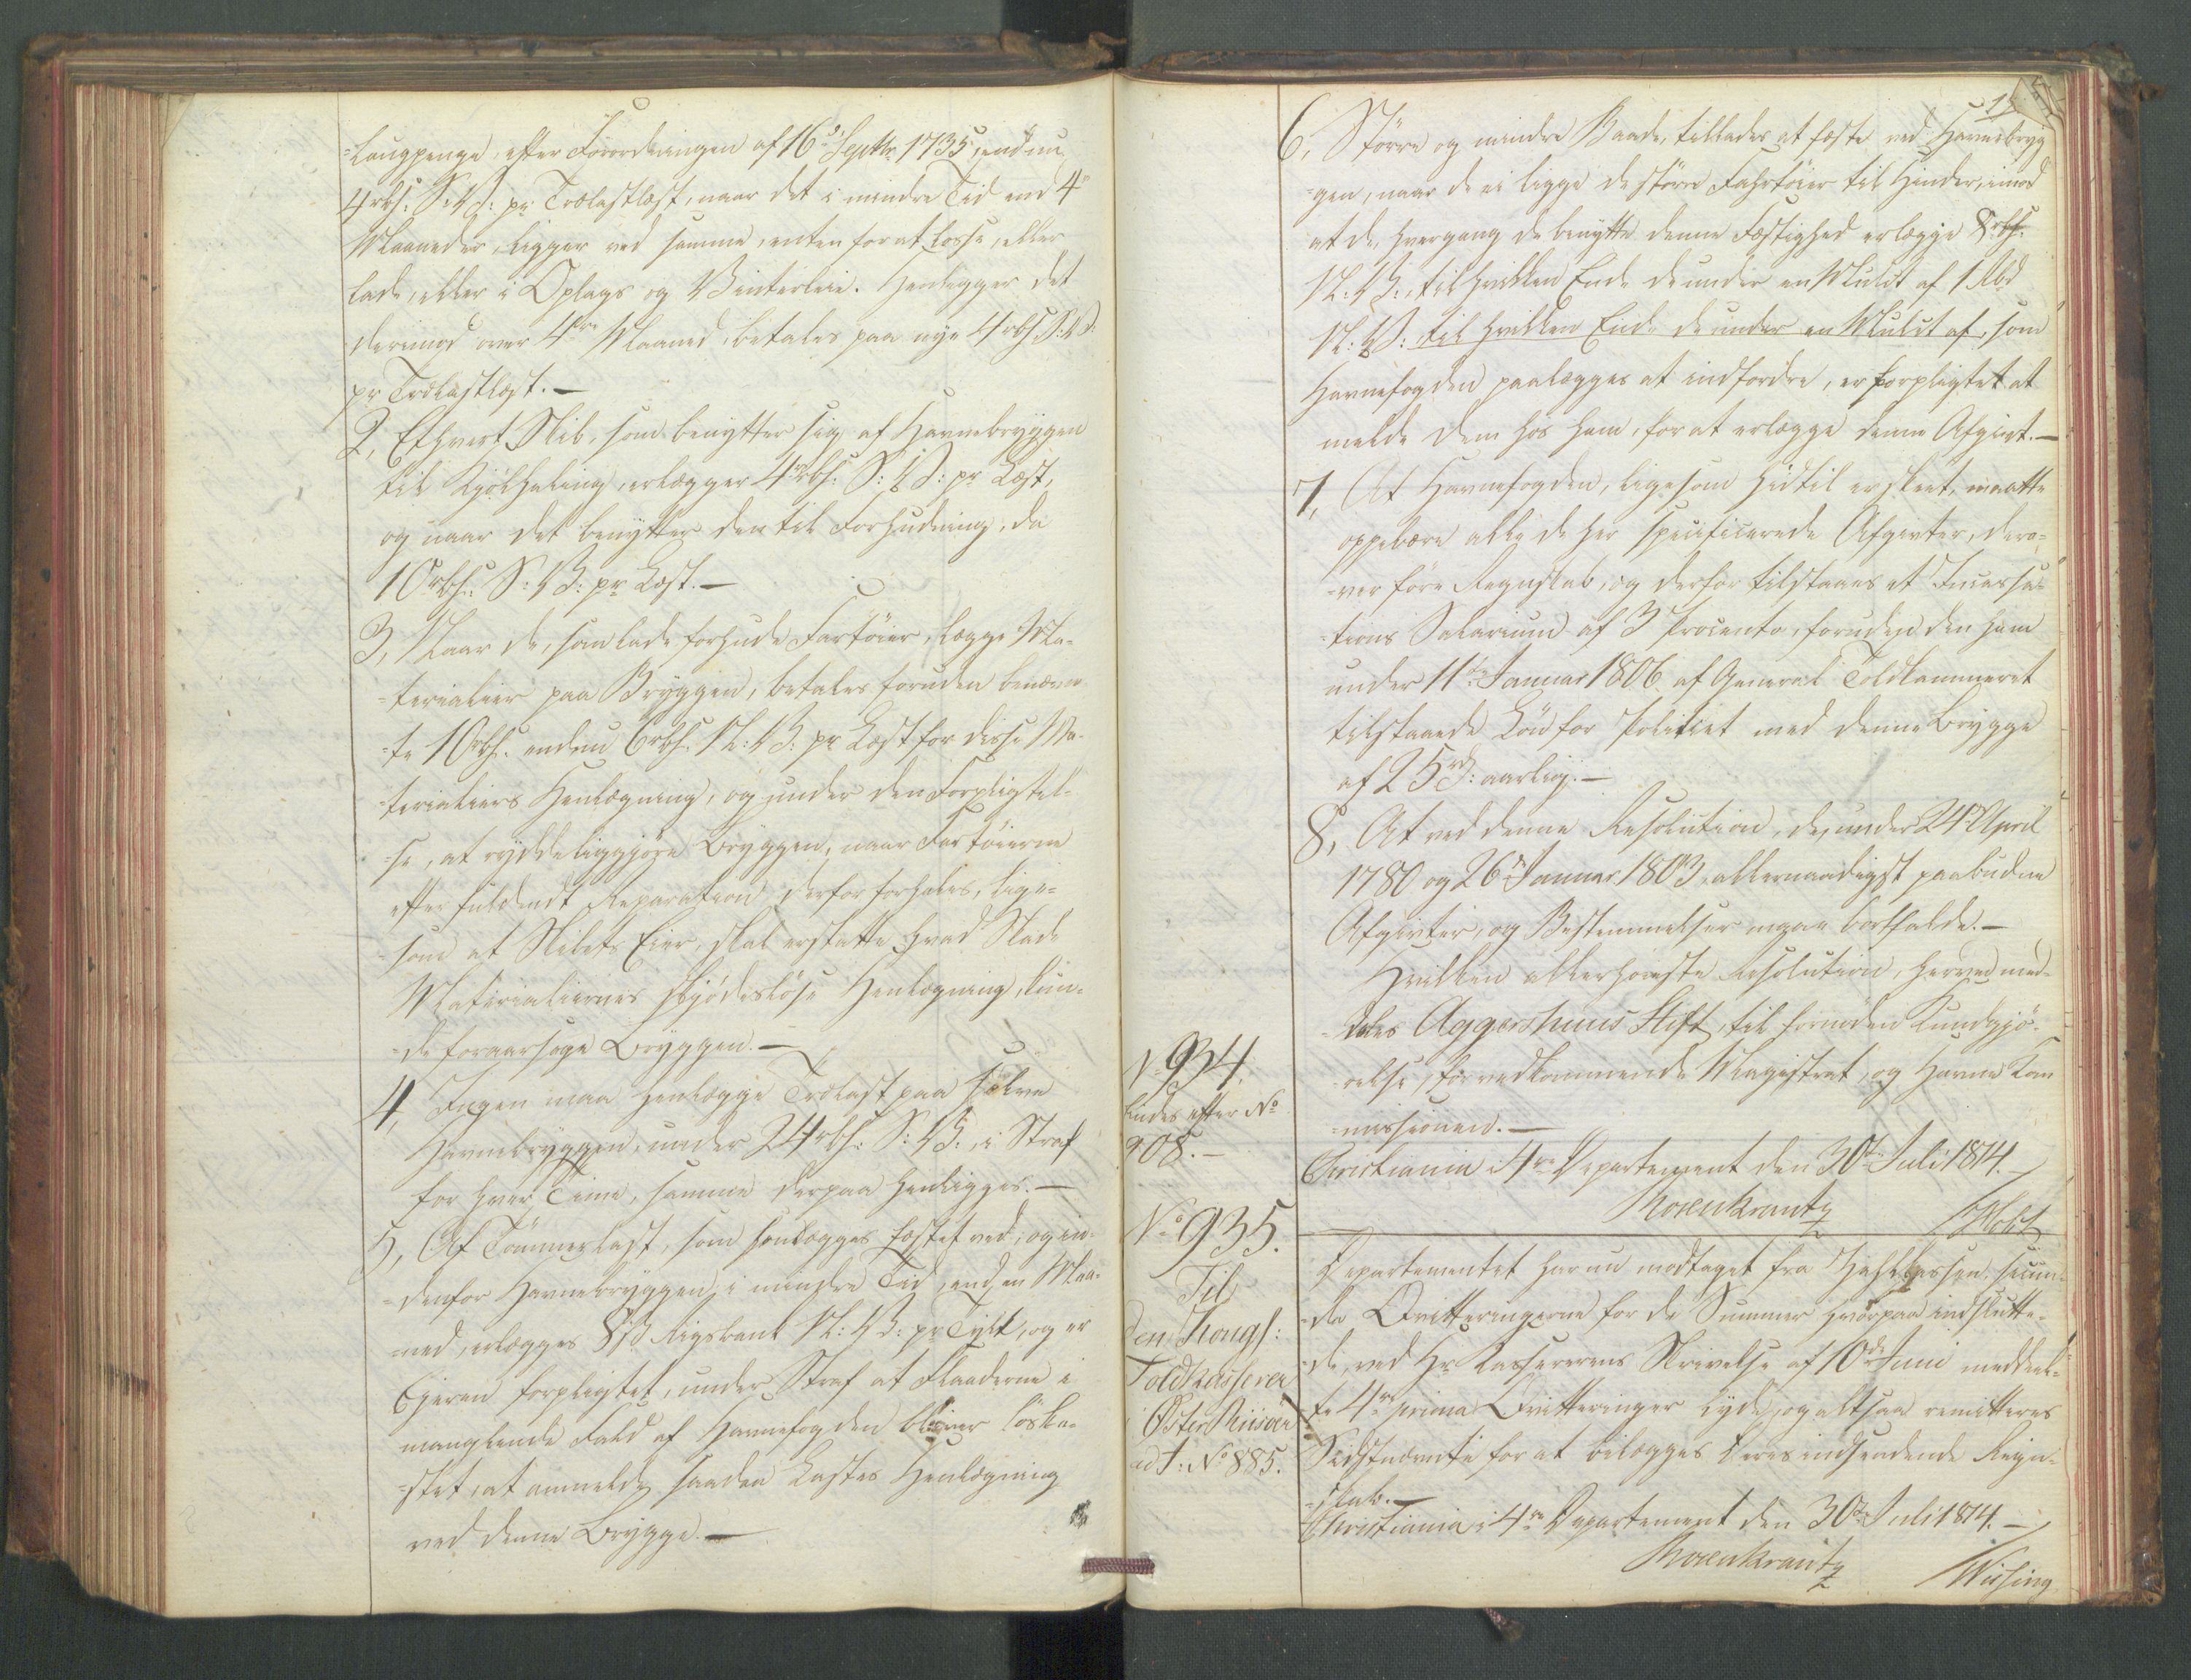 =Laugpenge, efter Forordningen af 16de Septbr 1735, endnu
4 rbs: S:V: pr Trælastlæst, naar det i mindre Tid end 4
Maaneder, ligger ved samme, enten for at losse, eller
lade, eller i Oplags og Vinterleie. Henligger det
derimod over 4re Maaned, betales paa nye 4 rbs S:V:
pr Trælastlæst.—
2, Ethvert Skib, som benytter sig af Havnebryggen
til Kjølhaling, erlægger 4 rbs: S:V: pr Læst,
og naar det benytter den til Forhudning, da
10 rbs: S:V: pr Læst.—
3, Naar de, som lade forhude Fartøier, lægge Ma-
=terialier paa Bryggen, betales foruden benævn-
=te 10 rbs: endnu 6 rbs: N:V: pr Læst for disse Ma-
=terialiers Henlægning, og under den Forpligtel-
=se, at ryddeliggjøre Bryggen, naar Fartøierne
efter fuldendt Reparation derfor forhales, lige-
=som at Skibets Eier, skal erstatte hvad Skade
Materialiernes skjødesløse Henlægning, kun-
=de foraarsage Bryggen.—
4, Ingen maa henlægge Trælast paa selve
Havnebryggen, under 24 rbs: S:V:, i Straf
for hver Time, samme derpaa henligges.—
5, Af Tømmerlast, som henlægges fæstet ved, og in-
=denfor Havnebryggen i mindre Tid, end en Maa-
=ned, erlægges 8 ß Rigsbank N:V: pr Tylt, og er
Eieren forpligtet, under Straf at Flaaderne i
manglende Fald af Havnefogden bliver løska-
=stet, at anmelde saadan Lastes Henlægning
ved denne Brygge.—
6, Større og mindre Baade, tillades at fæste ved Havnebryg
=gen, naar de ei ligge de større Fahrtøier til Hinder, imod
at de, hvergang de benytte denne Fæstighed erlægge 8 rbs:
N:V:, til hvilken Ende de under en Mulct af 1 Rbd
N:V: til hvilken Ende de under en Mulct af, som
Havnefogden paalægges at indfordre, er forpligtet at
melde dem hos ham, for at erlægge denne Afgivt.—
7, At Havnefogden, ligesom hidtil er skeet, maatte
oppebære alle de her specificerede Afgivter, dero-
=ver føre Regnskab, og derfor tilstaaes et Incassa-
=tions Salarium af 3 Procento, foruden den ham
under 11te Januar 1806 af General Toldkammeret
tilstaaede Løn for Politiet med denne Brygge
af 25 rd: aarlig.—
8, At ved denne Resolution, de, under 24de April
1780 og 26de Januar 1803, allernaadigst paabudne
Afgivter, og Bestemmelser maae bortfalde.—
Hvilken allerhøieste Resolution, herved med-
=deles Aggershuus Stift, til fornøden Kundgjø-
=relse, for vedkommende Magistrat, og Havne Kom
=missionen.—
Christiania i 4re Departement den 30te Juli 1814.
Rosenkrantz
/Holst
N. 934.
findes efter No
908.—
No 935.
Til
den Kongl:
Toldkasserer
i Øster Riisøer
ad J: No 885.
Departementet har nu modtaget fra Zahlkassen secun-
=da Qvitteringerne for de Summer hvorpaa indslutte-
=de, ved Hr Kassererens Skrivelse af 10de Juni meddeel-
=te 4re prima Qvitteringer lyde, og altsaa remitteres
Sidstnævnte for at bilægges Deres indsendende Regn-
=skab.—
Christiania i 4re Departement den 30te Juli 1814.—
Rosenkrantz
/Wiising